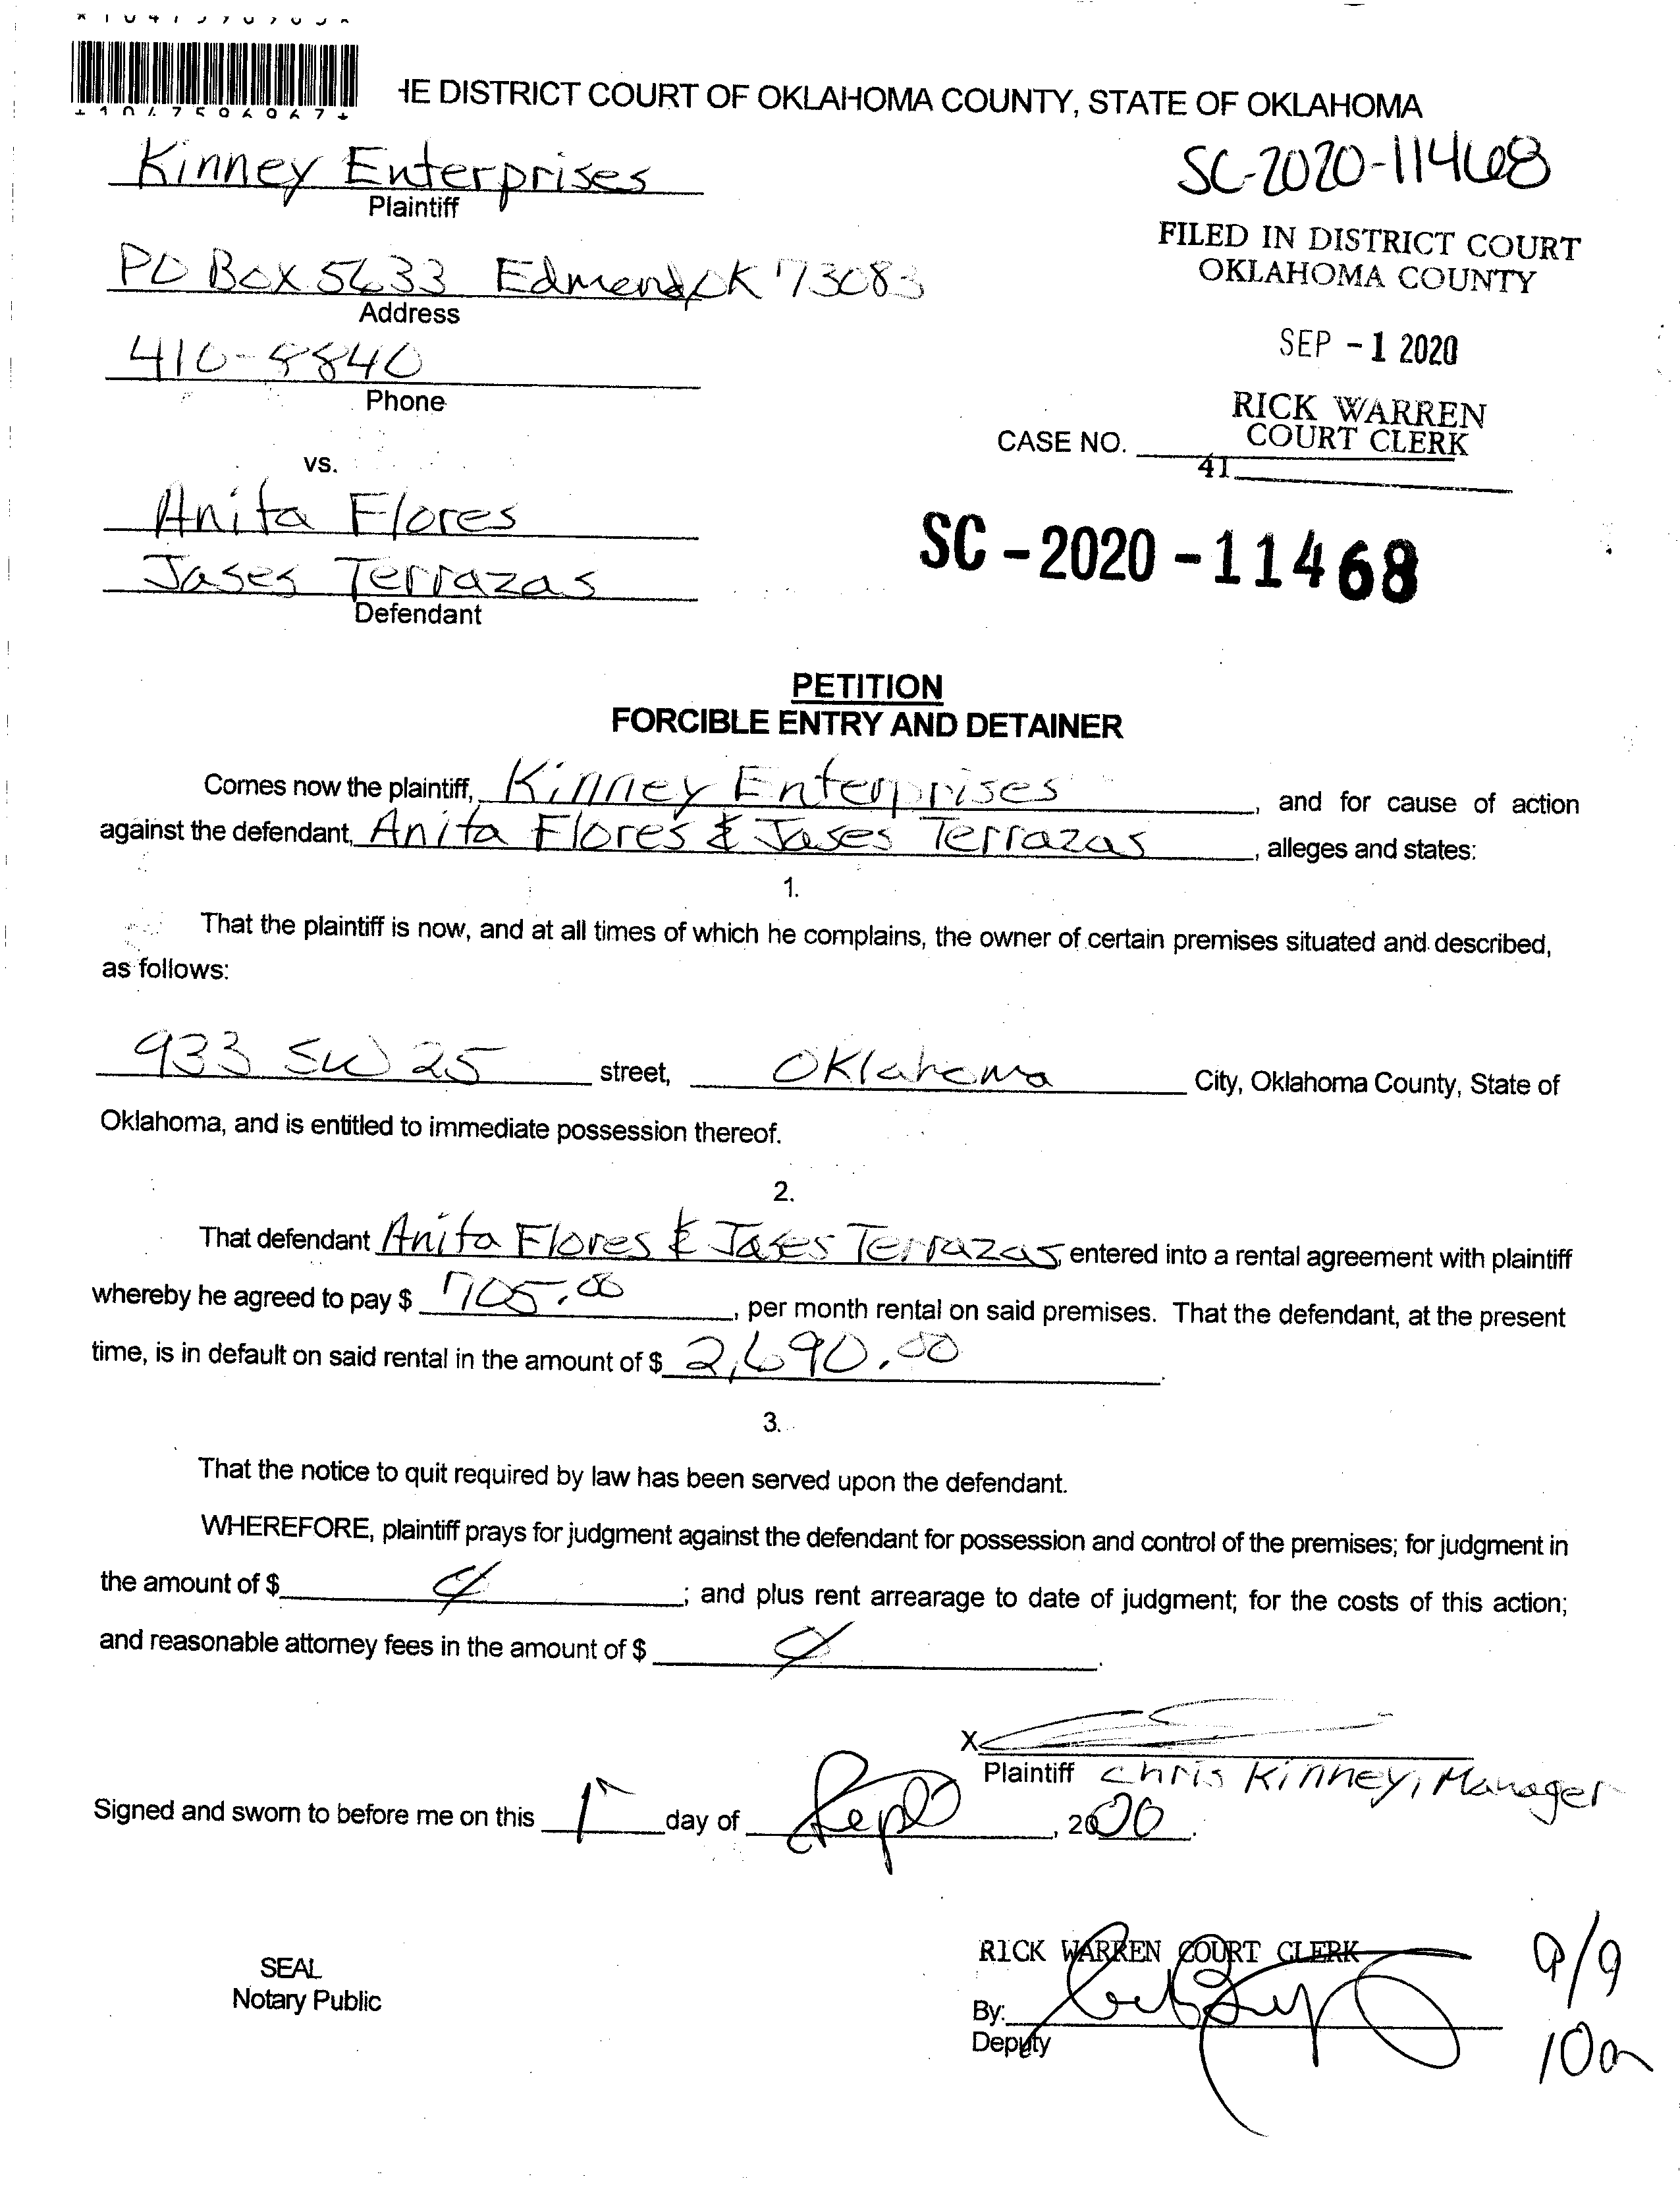 HE DISTRICT COURT OF OKLAHOMA COUNTY, STATE OF OKLAHOMA
Kinney Enterprises
Plaintiff
SC-2020-11468
FILED IN DISTRICT COURT
OKLAHOMA COUNTY
PO Box 5633 Edmond OK 73083
Address
SEP - 1 2020
410-8840
Phone
RICK WARREN
COURT CLERK
CASE NO.
41
vs.
Anita Flores
Jases Terrazas
Defendant
SC - 2020 - 11468
PETITION
FORCIBLE ENTRY AND DETAINER
Comes now the plaintiff, Kinney Enterprises, and for cause of action
against the defendant, Anita Flores & Jases Terrazas, alleges and states:
1.
That the plaintiff is now, and at all times of which he complains, the owner of certain premises situated and described,
as follows:
933 SW 25 street, Oklahoma City, Oklahoma County, State of
Oklahoma, and is entitled to immediate possession thereof.
2.
That defendant Anita Flores & Jases Terrazas, entered into a rental agreement with plaintiff
whereby he agreed to pay $ 705.00, per month rental on said premises. That the defendant, at the present
time, is in default on said rental in the amount of $ 2,690.00.
3.
That the notice to quit required by law has been served upon the defendant.
WHEREFORE, plaintiff prays for judgment against the defendant for possession and control of the premises; for judgment in
the amount of $ ; and plus rent arrearage to date of judgment; for the costs of this action;
and reasonable attorney fees in the amount of $ .
X
Plaintiff Chris Kinney, Manager
Signed and sworn to before me on this 1 day of Sept, 2020.
SEAL
Notary Public
RICK WARREN COURT CLERK
By:
Deputy
9/9
10a